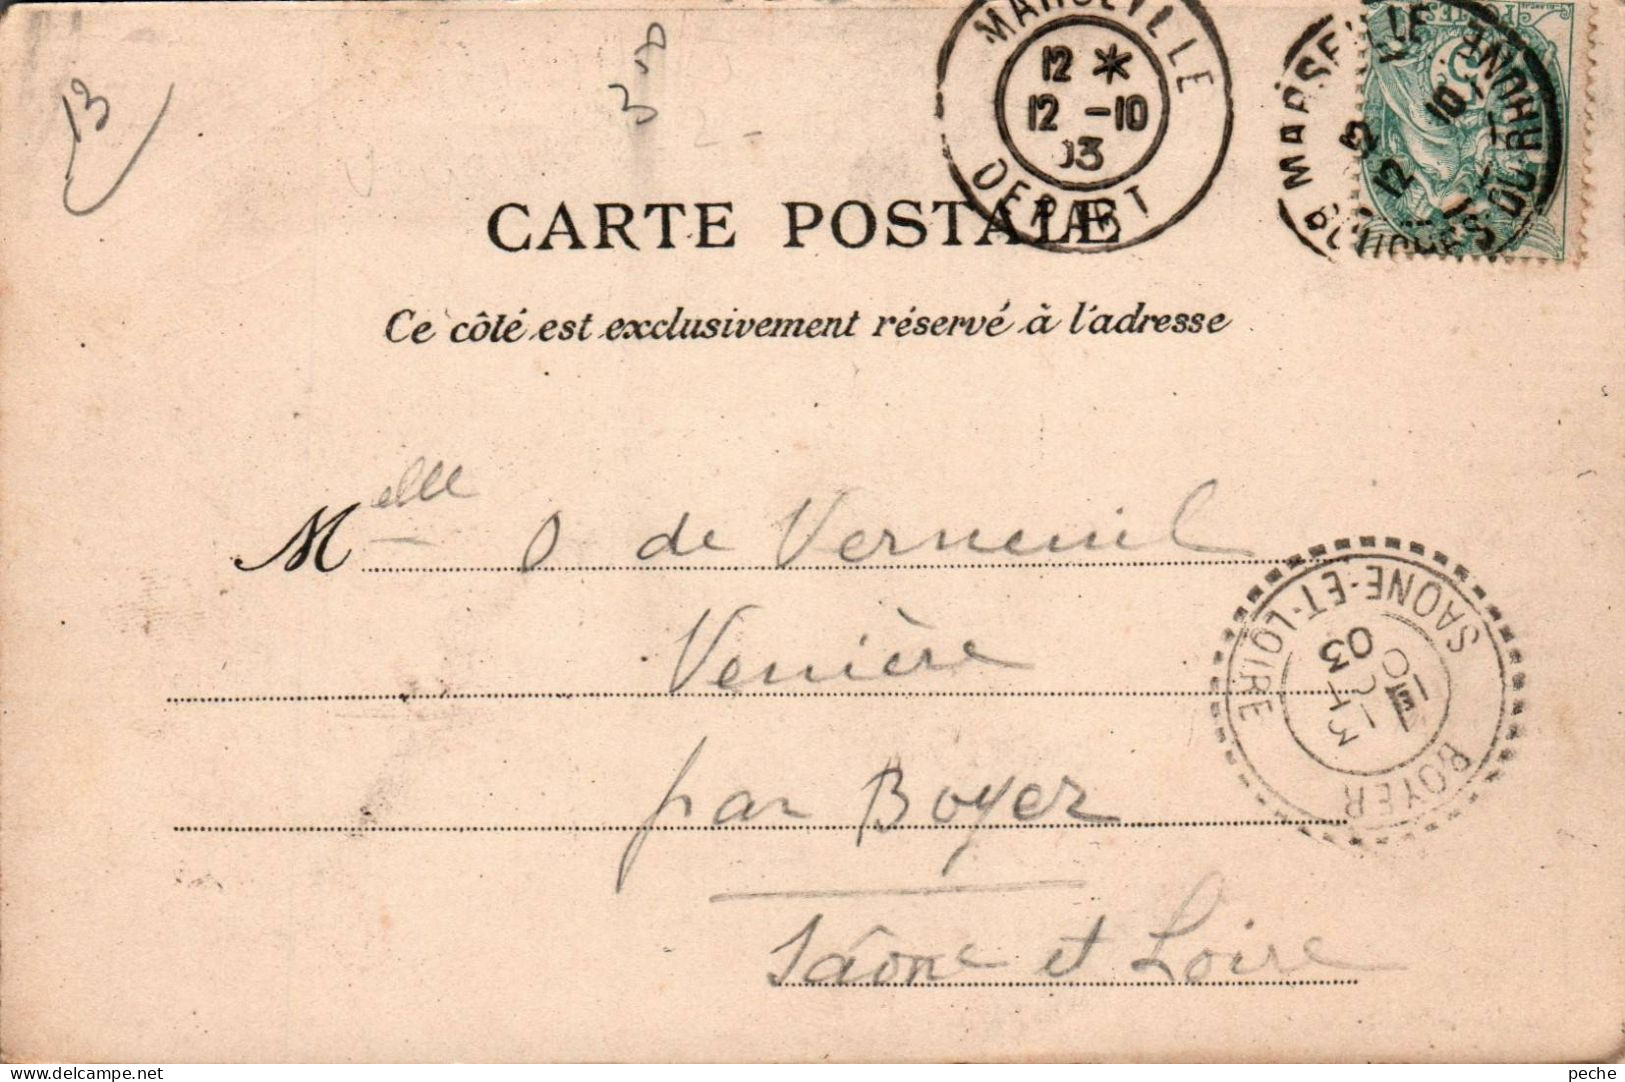 13
MARSEILLE
12 *
12 -10
03
DEPART
MARSEILLE
BOUCHES DU RHONE
CARTE POSTALE
Ce côté est exclusivement réservé à l'adresse
Melle O de Verneuil
Venière
par Boyer
Saône et Loire
BOYER
SAONE-ET-LOIRE
13
10
03
peche